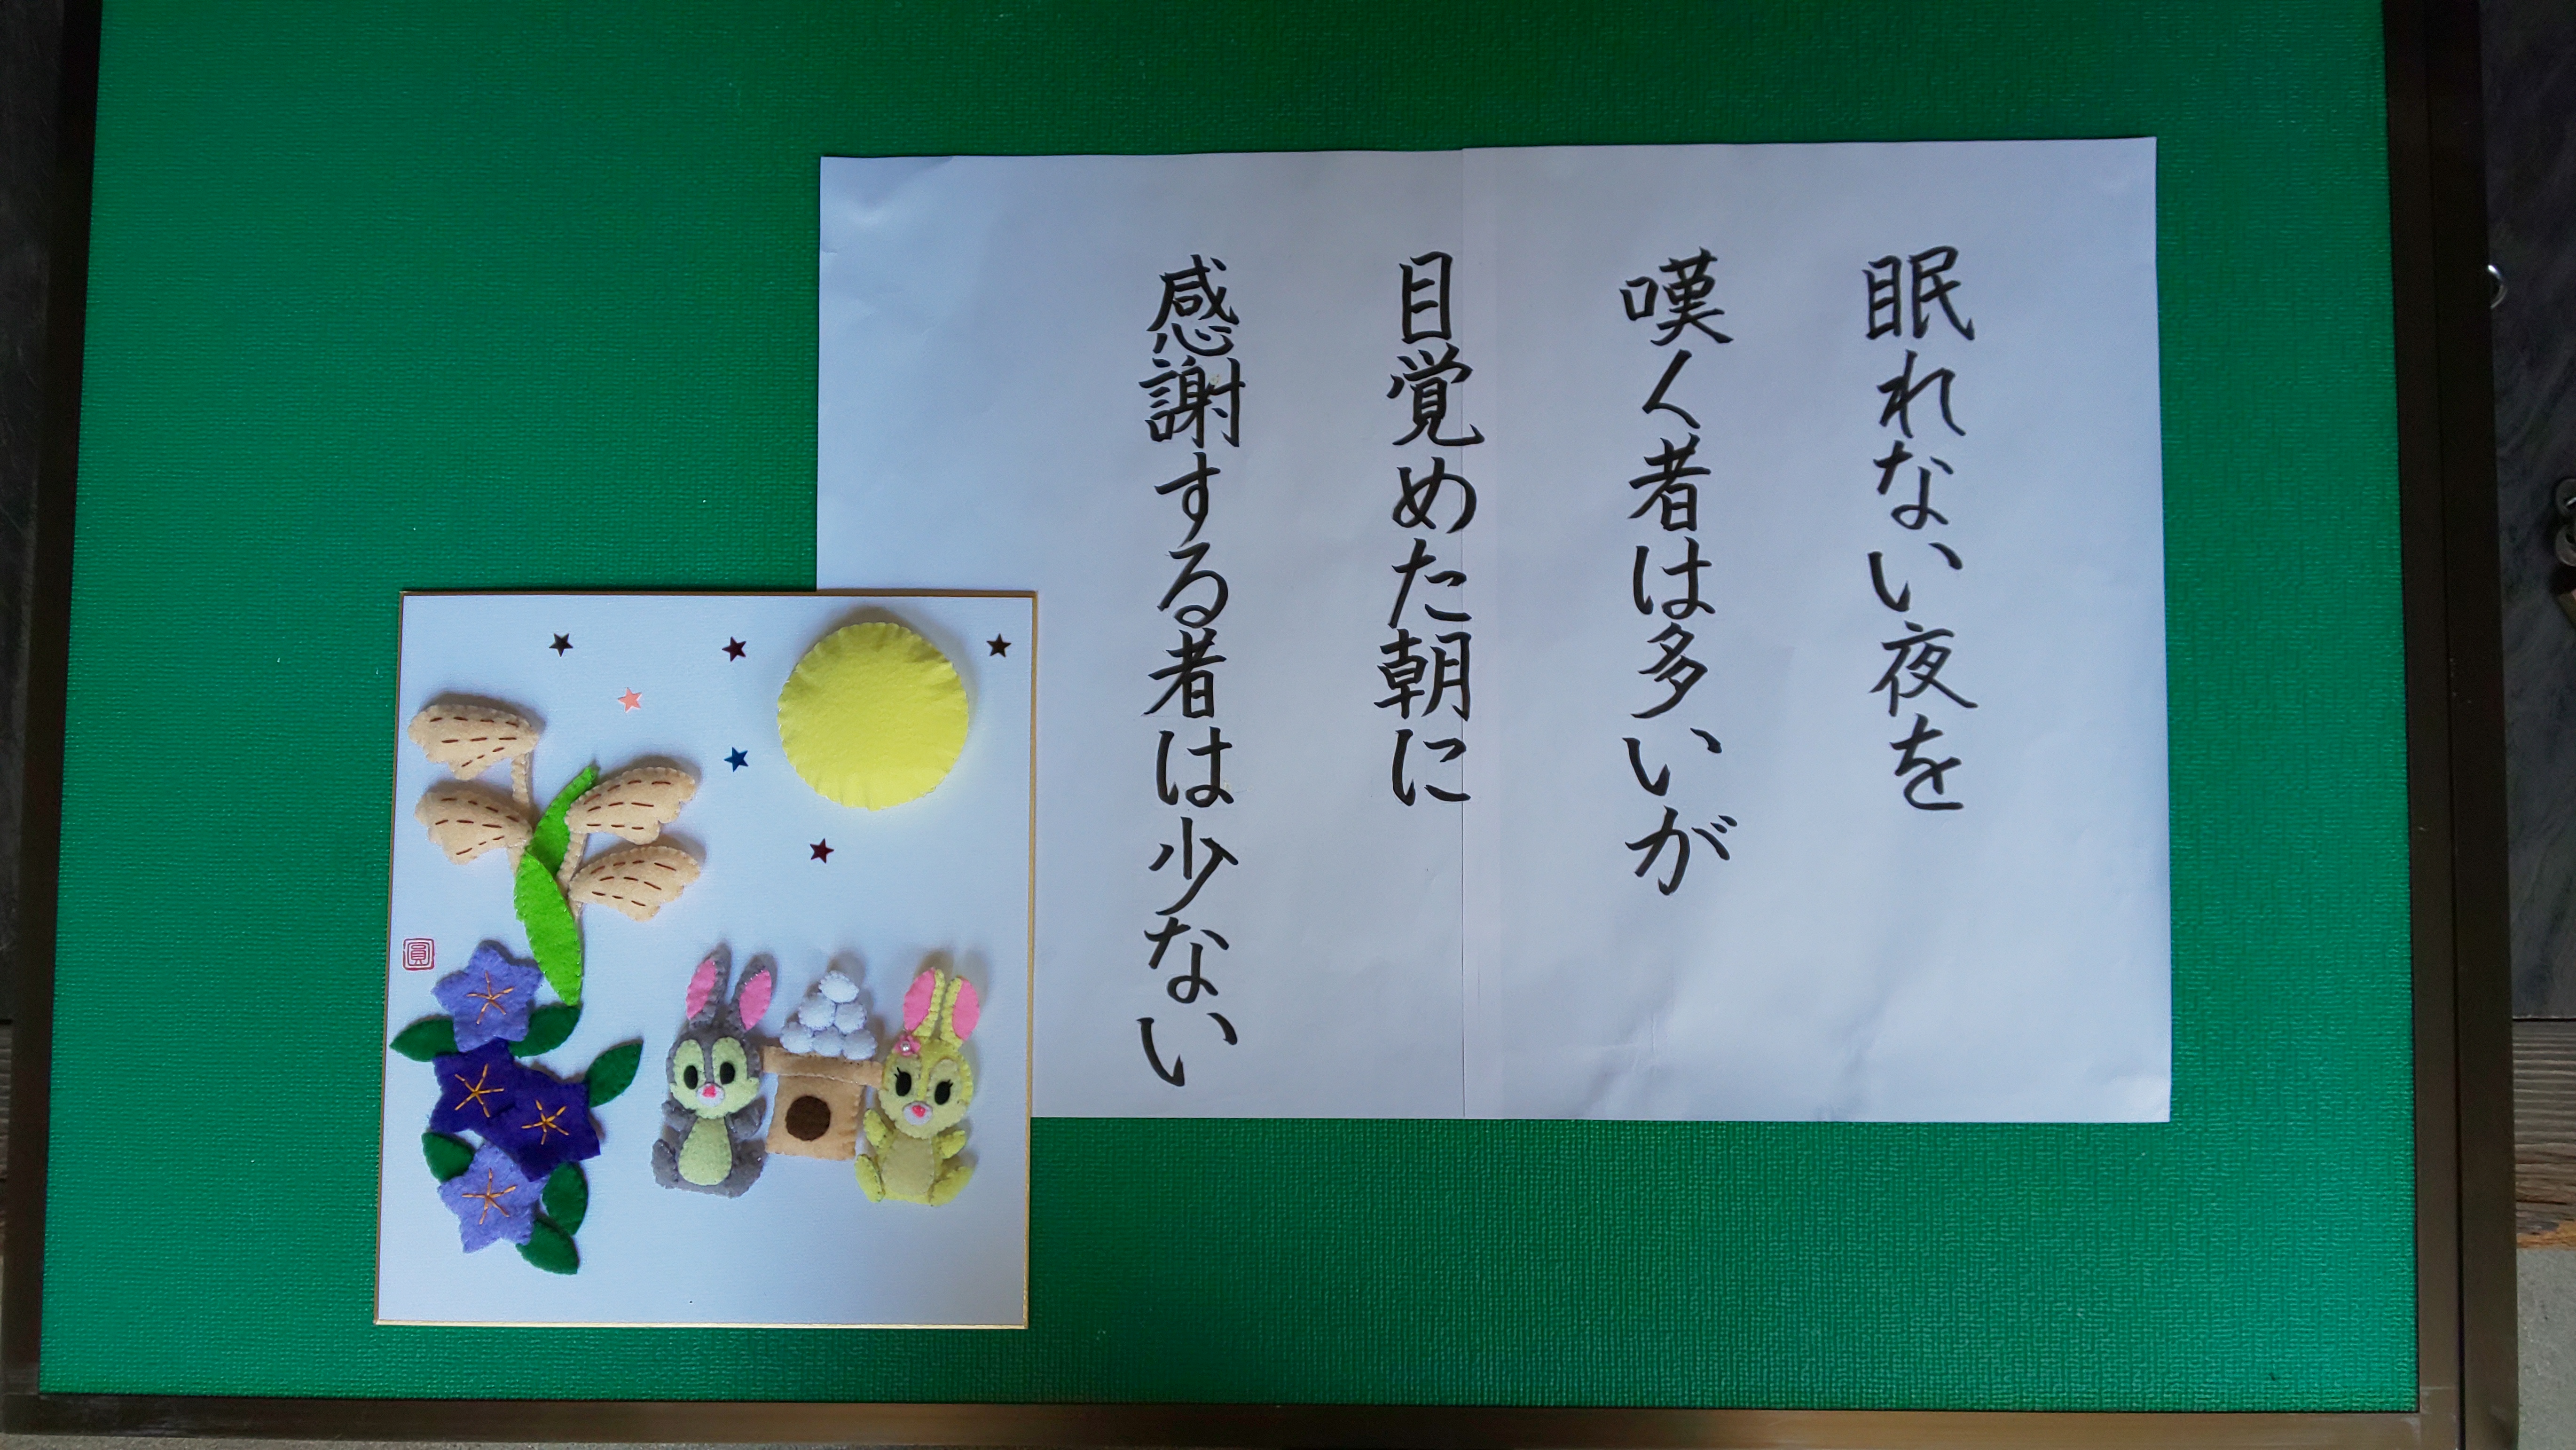 眠れない夜を
嘆く者は多いが
目覚めた朝に
感謝する者は少ない
圓